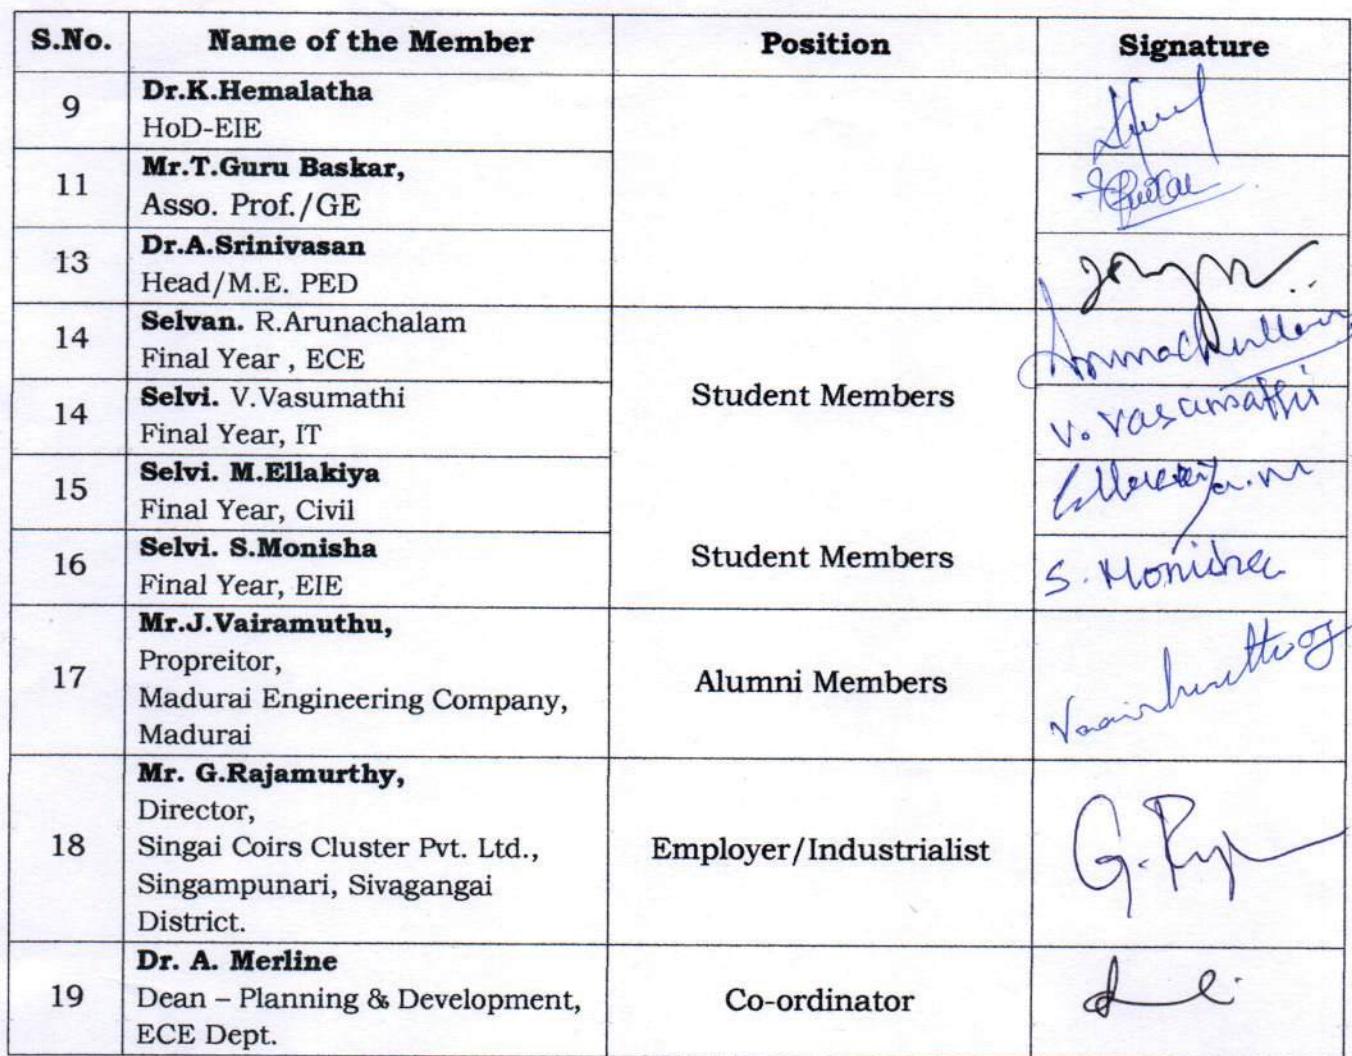 S.No. Name of the Member Position Signature
9 Dr.K.Hemalatha
HoD-EIE
11 Mr.T.Guru Baskar,
Asso. Prof./GE
13 Dr.A.Srinivasan
Head/M.E. PED
14 Selvan. R.Arunachalam
Final Year , ECE
Student Members
14 Selvi. V.Vasumathi
Final Year, IT
V. Vasumathi
15 Selvi. M.Ellakiya
Final Year, Civil
16 Selvi. S.Monisha
Final Year, EIE
Student Members
S. Monisha
17 Mr.J.Vairamuthu,
Propreitor,
Madurai Engineering Company,
Madurai
Alumni Members
18 Mr. G.Rajamurthy,
Director,
Singai Coirs Cluster Pvt. Ltd.,
Singampunari, Sivagangai
District.
Employer/Industrialist
19 Dr. A. Merline
Dean – Planning & Development,
ECE Dept.
Co-ordinator